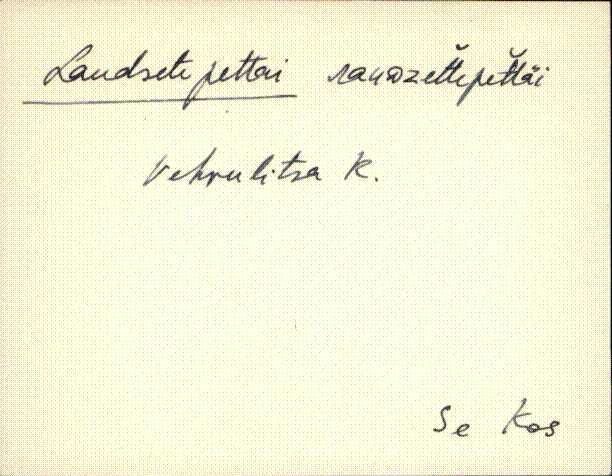 Laudsete pettäi ʌauᴅzet̆t̆epet̆t̆äi
Vehrulitsa K.
Se Kos